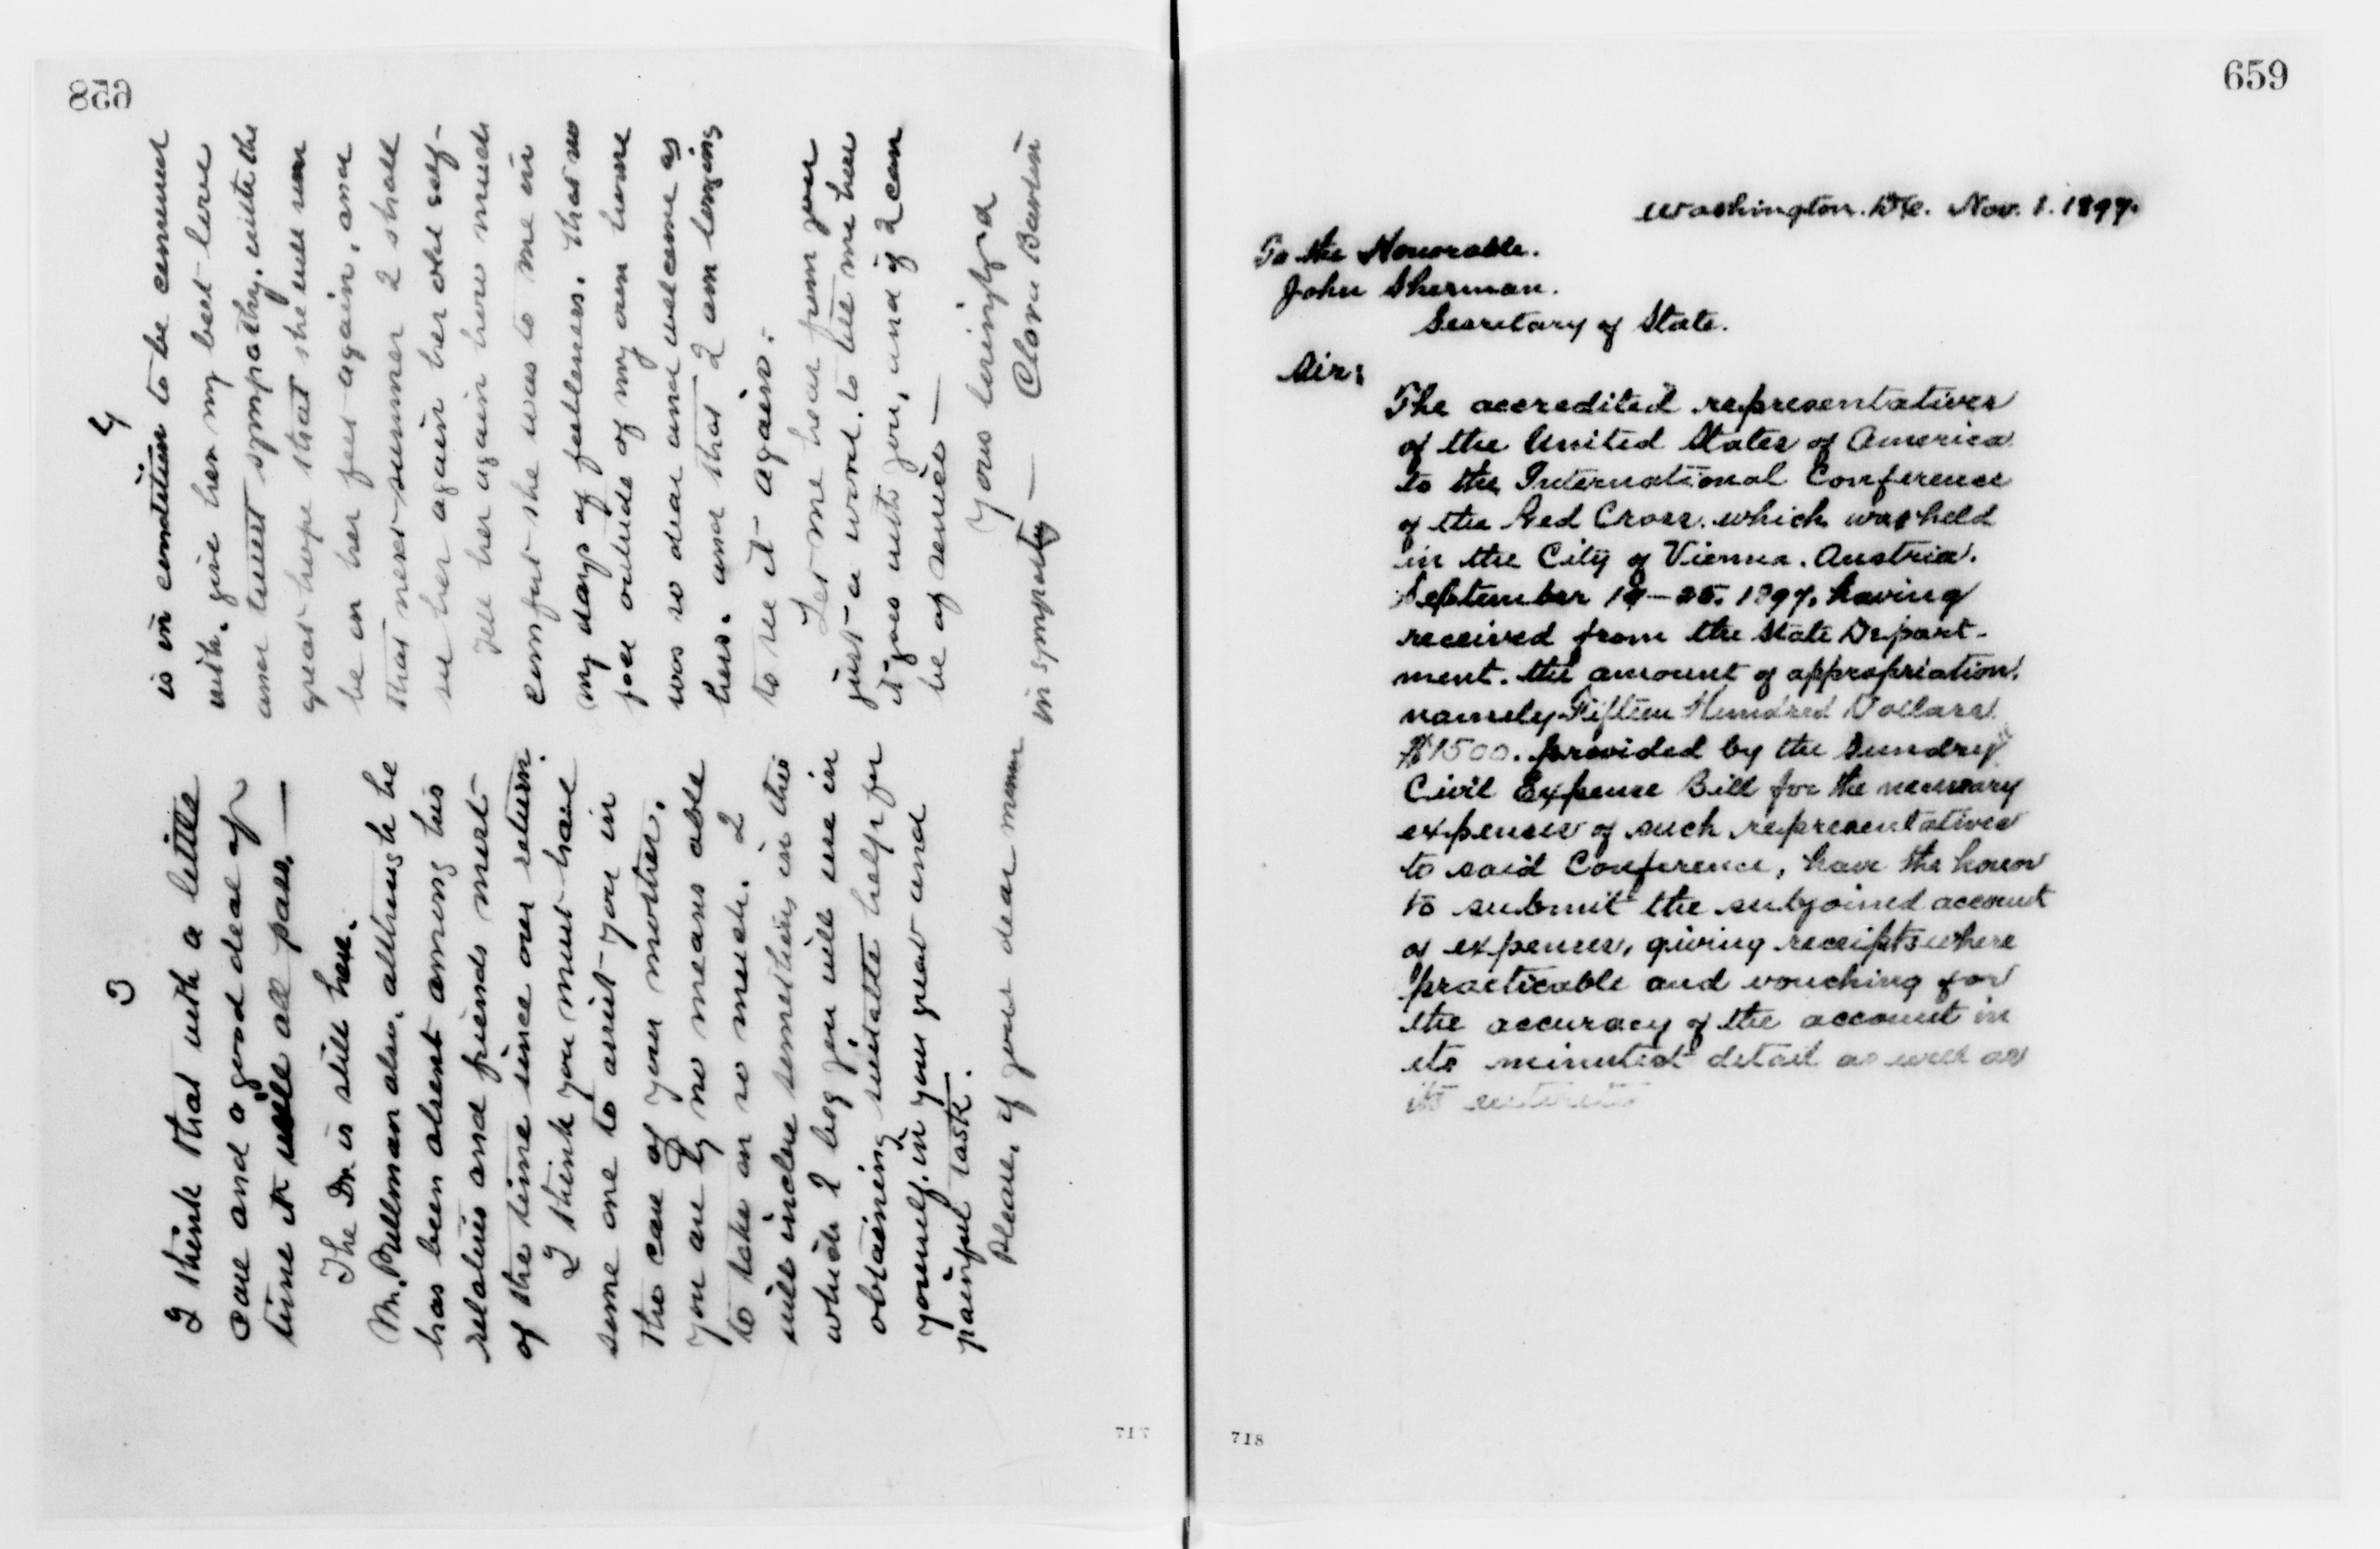 658
3
I think that with a little
care and a good deal of
time it will all pass. —
The Dr. is still here.
Mr. Pullman also, although he
has been absent among his
relatives and friends most
of the time since our return.
I think you must have
some one to assist you in
the care of your mother.
You are by no means able
to take on so much. I
will inclose something in this
which I beg you will use in
obtaining suitable help for
yourself, in your great and
painful task.
Please, if your dear mother
4
is in condition to be communed
with, give her my best love
and truest sympathy, with the
great hope that she will soon
be on her feet again, and
that next summer I shall
see her again her old self -
Tell her again how much
comfort she was to me in
my days of feebleness. That no
place outside of my own home
was so dear and welcome as
hers. and that I am longing
to see it again.
Let me hear from you
just a word, to tell me how
it goes with you, and if I can
be of service —
Yours lovingly and
in sympathy — Clara Barton
717
659
Washington. D.C. Nov. 1. 1897.
To the Honorable.
John Sherman.
Secretary of State.
Sir:
The accredited representatives
of the United States of America
to the International Conference
of the Red Cross. which was held
in the City of Vienna. Austria.
September 1897. having
received from the State Depart-
ment. the amount of appropriation.
namely Fifteen Hundred Dollars
$1500. provided by the Sundry
Civil Expense Bill for the necessary
expenses of such representatives
to said Conference, have the honor
to submit the subjoined account
of expenses, giving receipts where
practicable and vouching for
the accuracy of the account in
its minutest detail as well as
its entirety
718